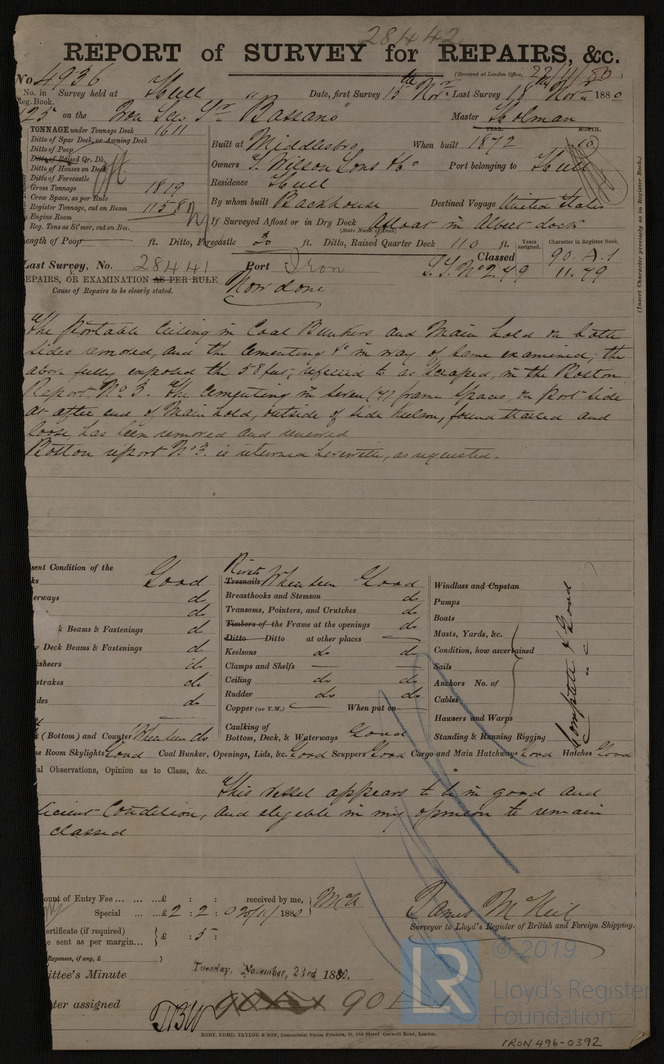 28442
REPORT of SURVEY for REPAIRS, &c.
(Received at London Office, 22/11/80
No. 4936
No. in Survey held at Hull Date, first Survey 15th Novr Last Survey 18th Novr 1880
Reg. Book.
125 on the Iron Scw Sr "Bassano" Master Holman
TONNAGE under Tonnage Deck 1611
Ditto of Spar Deck, or Awning Deck
Ditto of Poop
Ditto of Raised Qr. Dk.
Ditto of Houses on Deck
Ditto of Forecastle
Gross Tonnage 1819
Crew Space, as per Rule
Register Tonnage, cut on Beam 1158
Engine Room
Reg. Tons as St'mer, cut on Bm.
YEAR. MONTH.
Built at Middlesbro When built 1872
Owners T. Wilson Sons & Co Port belonging to Hull
Residence Hull
By whom built Backhouse Destined Voyage United States
If Surveyed Afloat or in Dry Dock Afloat in Albert dock
(State Name of Dock.)
Length of Poop ft. Ditto, Forecastle 30 ft. Ditto, Raised Quarter Deck 110 ft. Years assigned. Character in Register Book.
Last Survey, No. 28441 Port Iron Classed 90. A.1
S.S. No 2.49 11.79
REPAIRS, OR EXAMINATION AS PER RULE
Cause of Repairs to be clearly stated.
Now done
The portable Ceiling in Coal Bunkers and Main hold on both
sides removed, and the cementing &c in way of same examined; the
above fully exposed the 58 referred to as scraped, in the Boston
Report No 3. The cementing in seven (7) frame spaces, on port side
at after end of Main hold, outside of side keelson, found started and
loose has been removed and renewed
Boston report No 3. is returned herewith, as requested.
sent Condition of the
ks Good
erways do
do
k Beams & Fastenings do
r Deck Beams & Fastenings do
ksheers do
strakes do
des do
s (Bottom) and Counter When seen do
Rivets
Treenails When seen Good
Breasthooks and Stemson do
Transoms, Pointers, and Crutches do
Timbers of the Frame at the openings do
Ditto Ditto at other places
Keelsons do do
Clamps and Shelfs
Ceiling do do
Rudder do do
Copper (or Y.M.) When put on
Caulking of
Bottom, Deck, & Waterways Good
Windlass and Capstan
Pumps
Boats
Masts, Yards, &c.
Condition, how ascertained
Sails
Anchors No. of
Cables
Hawsers and Warps
Standing & Running Rigging
Complete & Good
ne Room Skylights Good Coal Bunker, Openings, Lids, &c. Good Scuppers Good Cargo and Main Hatchways Good Hatches Good
al Observations, Opinion as to Class, &c.
This vessel appears to be in good and
ficient Condition, and eligible in my opinion to remain
classed
ount of Entry Fee ... ... £ : : received by me,
Special ... £ 2 : 2 : 0 20/11/1880 McN
ertificate (if required)
e sent as per margin... £ : 5 :
Expenses, if any, £
James McNeil
Surveyor to Lloyd's Register of British and Foreign Shipping.
ittee's Minute Tuesday, November, 23rd 1880.
ter assigned 90 A 1 90 A 1
KORT, EDMD. TAYLOR & SON, Commercial Steam Printers, 58, Old Street, Goswell Road, London.
(Insert Character precisely as in Register Book.)
© 2019
LR
Lloyd's Register
Foundation
IRON 496-0392